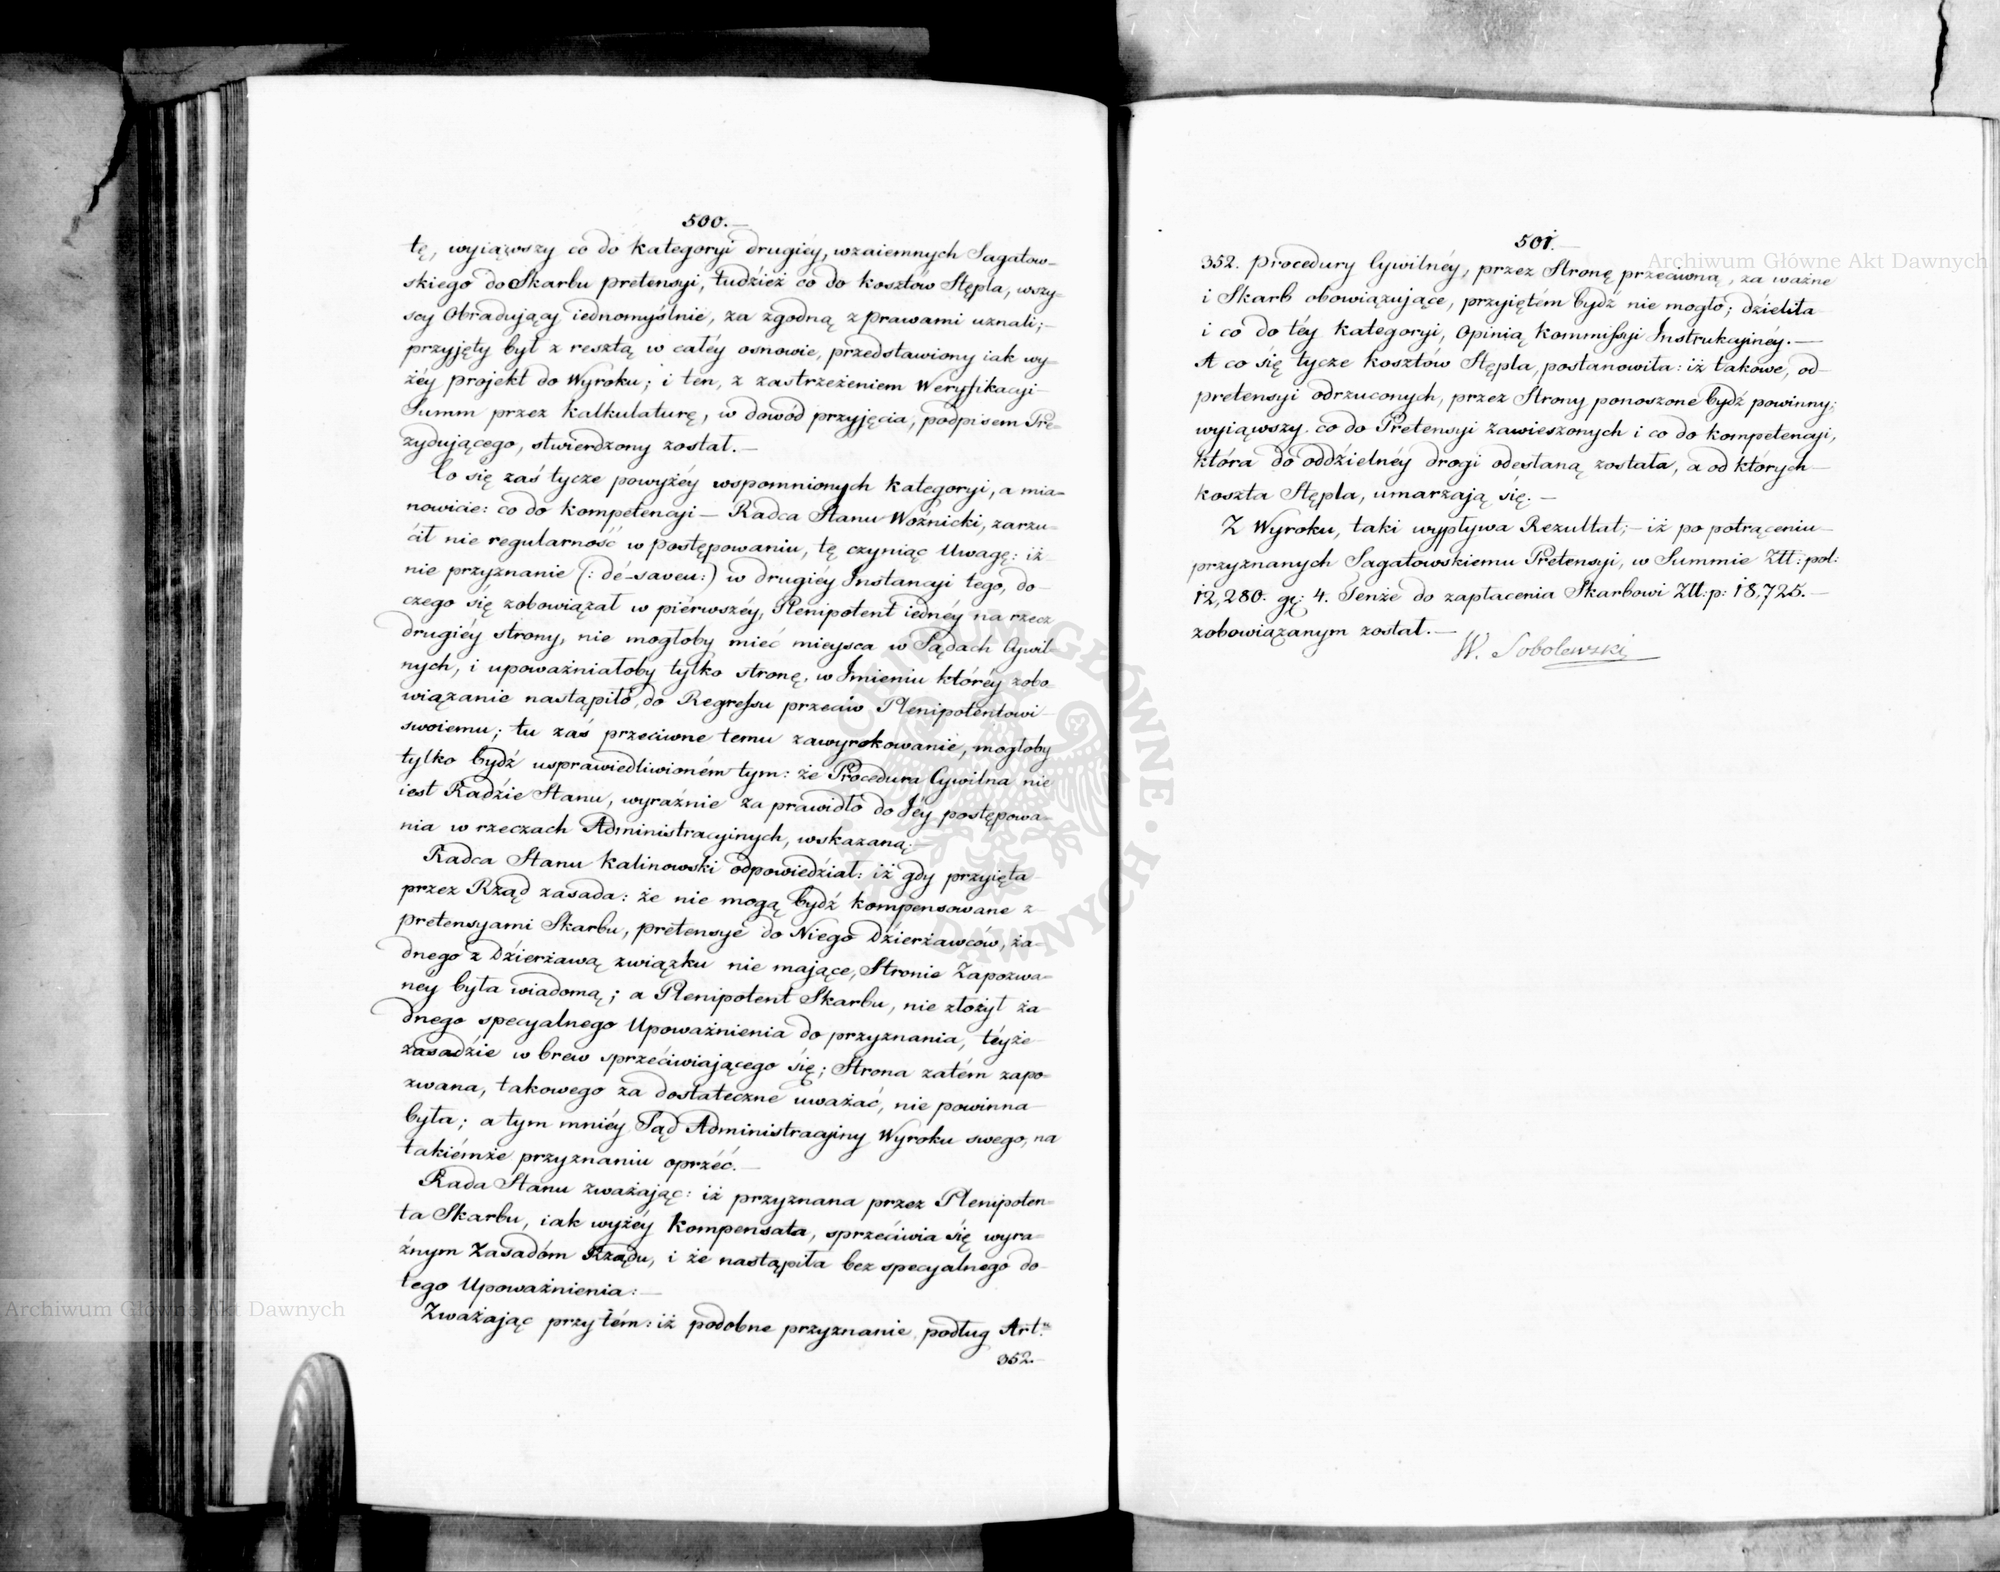 500.—
tę, wyiąwszy co do kategoryi drugiéy, wzaiemnych Sagatow-
skiego do Skarbu pretensyi, tudzież co do kosztów Stępla, wszy-
scy Obradujący iednomyślnie, za zgodną z prawami uznali;—
przyjęty był z resztą w całéy osnowie, przedstawiony iak wy-
żéy projekt do Wyroku; i ten, z zastrzeżeniem Weryfikacyi—
Summ przez Kalkulaturę, w dowód przyjęcia, podpisem Pre-
zydującego, stwierdzony został.—
Co się zaś tycze powyżéy wspomnionych kategoryi, a mia-
nowicie: co do kompetencyi— Radca Stanu Woźnicki, zarzu-
cił nie regularność w postępowaniu, tę czyniąc Uwagę: iż—
nie przyznanie (: dé-saveu:) w drugiéy Instancyi tego, do-
czego się zobowiązał w piérwszéy, Plenipotent iednéy na rzecz
drugiéy strony, nie mogłoby mieć mieysca w Sądach Cywil-
nych, i upoważniałoby tylko stronę, w Imieniu któréy zobo-
wiązanie nastąpiło, do Regressu przeciw Plenipotentowi—
swoiemu; tu zaś przeciwne temu zawyrokowanie, mogłoby
tylko bydź usprawiedliwioném tym: że Procedura Cywilna nie
iest Radzie Stanu, wyraźnie za prawidło do Jéy postępowa-
nia w rzeczach Administracyinych, wskazaną.—
Radca Stanu Kalinowski odpowiedział: iż gdy przyięta—
przez Rząd zasada: że nie mogą bydź kompensowane z—
pretensyami Skarbu, pretensye do Niego Dzierżawców, ża-
dnego z Dzierżawą związku nie mające, Stronie Zapozwa-
ney była wiadomą; a Plenipotent Skarbu, nie złożył ża-
dnego specyalnego Upoważnienia do przyznania, téyże—
zasadzie w brew sprzéciwiającego się; Strona zatém zapo-
zwana, takowego za dostateczne uważać, nie powinna—
była; a tym mniéy Sąd Administracyiny Wyroku swego, na
takiémże przyznaniu oprzéć.—
Rada Stanu zważając: iż przyznana przez Plenipoten-
ta Skarbu, iak wyżéy Kompensata, sprzéciwia się wyra-
źnym Zasadóm Rządu, i że nastąpiła bez specyalnego do—
tego Upoważnienia:—
Zważając przytém: iż podobne przyznanie, podług Art.
352.—
501.—
352. Procedury Cywilnéy, przez Stronę przeciwną, za ważne
i Skarb obowiązujące, przyiętém bydź nie mogło; dzieliła—
i co do téy kategoryi, Opinią Kommissyi Instrukcyinéy.—
A co się tycze kosztów Stępla, postanowiła: iż takowe, od—
pretensyi odrzuconych, przez Strony ponoszone bydź powinny;
wyiąwszy co do Pretensyi zawieszonych i co do kompetencyi,
która do oddzielnéy drogi odesłaną została, a od których—
koszta Stępla, umarzają się.—
Z Wyroku, taki wypływa Rezultat;— iż po potrąceniu—
przyznanych Sagatowskiemu Pretensyi, w Summie Złł: pol:
12,280. gr: 4. Tenże do zapłacenia Skarbowi Złł: p: 18,725.—
zobowiązanym został.—
W. Sobolewski
Archiwum Główne Akt Dawnych
Archiwum Główne Akt Dawnych
ARCHIWUM GŁÓWNE AKT DAWNYCH